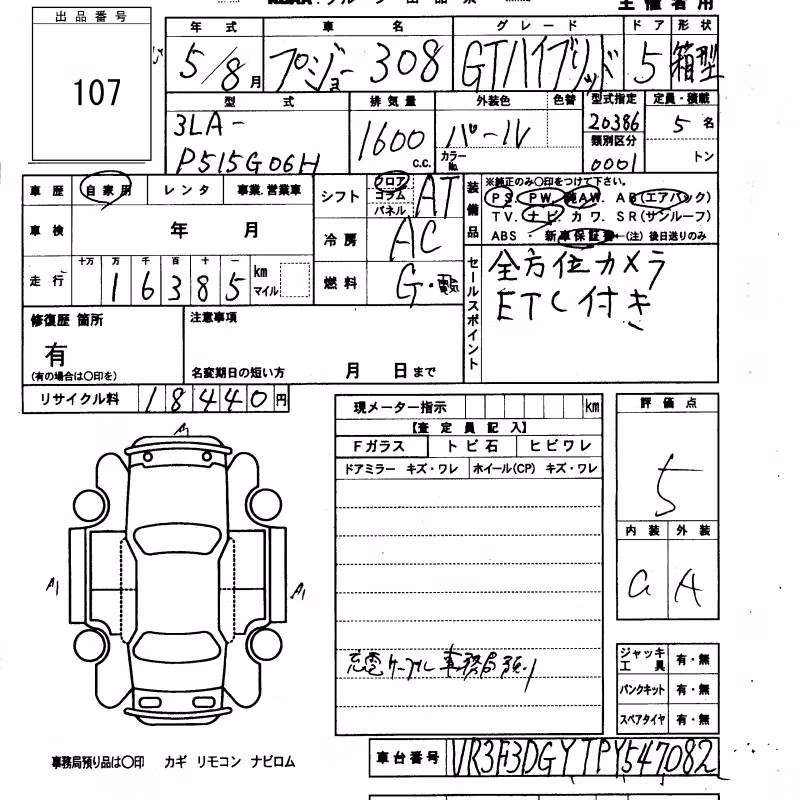 出品番号
107
主催者用
年 式 車 名 グ レ ー ド ド ア 形 状
5/8月 プジョー 308 GTハイブリッド 5 箱型
型 式 排気量 外装色 色替 型式指定 定員・積載
3LA- 1600 c.c. パール カラーNo. 20386 5 名
P515G06H 類別区分 0001 トン
車 歴 自家用 レンタ 事業.営業車 シフト フロア コラム パネル AT
装備品 ※純正のみ〇印をつけて下さい。
PS. PW. 純AW. AB(エアバック)
TV. ナビ. カワ. SR(サンルーフ)
ABS ・ 新車保証書←(注) 後日送りのみ
車 検 年 月 冷 房 AC
走 行 十万 万 千 百 十 一
16385 km マイル 燃 料 G・電気
セールスポイント 全方位カメラ
ETC付き
修復歴 箇所 注意事項
有
(有の場合は〇印を) 名変期日の短い方 月 日まで
リサイクル料 18440円
現メーター指示 km
【査 定 員 記 入】
Fガラス トビ石 ヒビワレ
ドアミラー キズ・ワレ ホイール(CP) キズ・ワレ
評 価 点
5
内 装 外 装
A
A1
A1
A1
充電ケーブル 事務局預り
ジャッキ工具 有・無
パンクキット 有・無
スペアタイヤ 有・無
事務局預り品は〇印 カギ リモコン ナビロム
車台番号 VR3F3DGYTPY547082